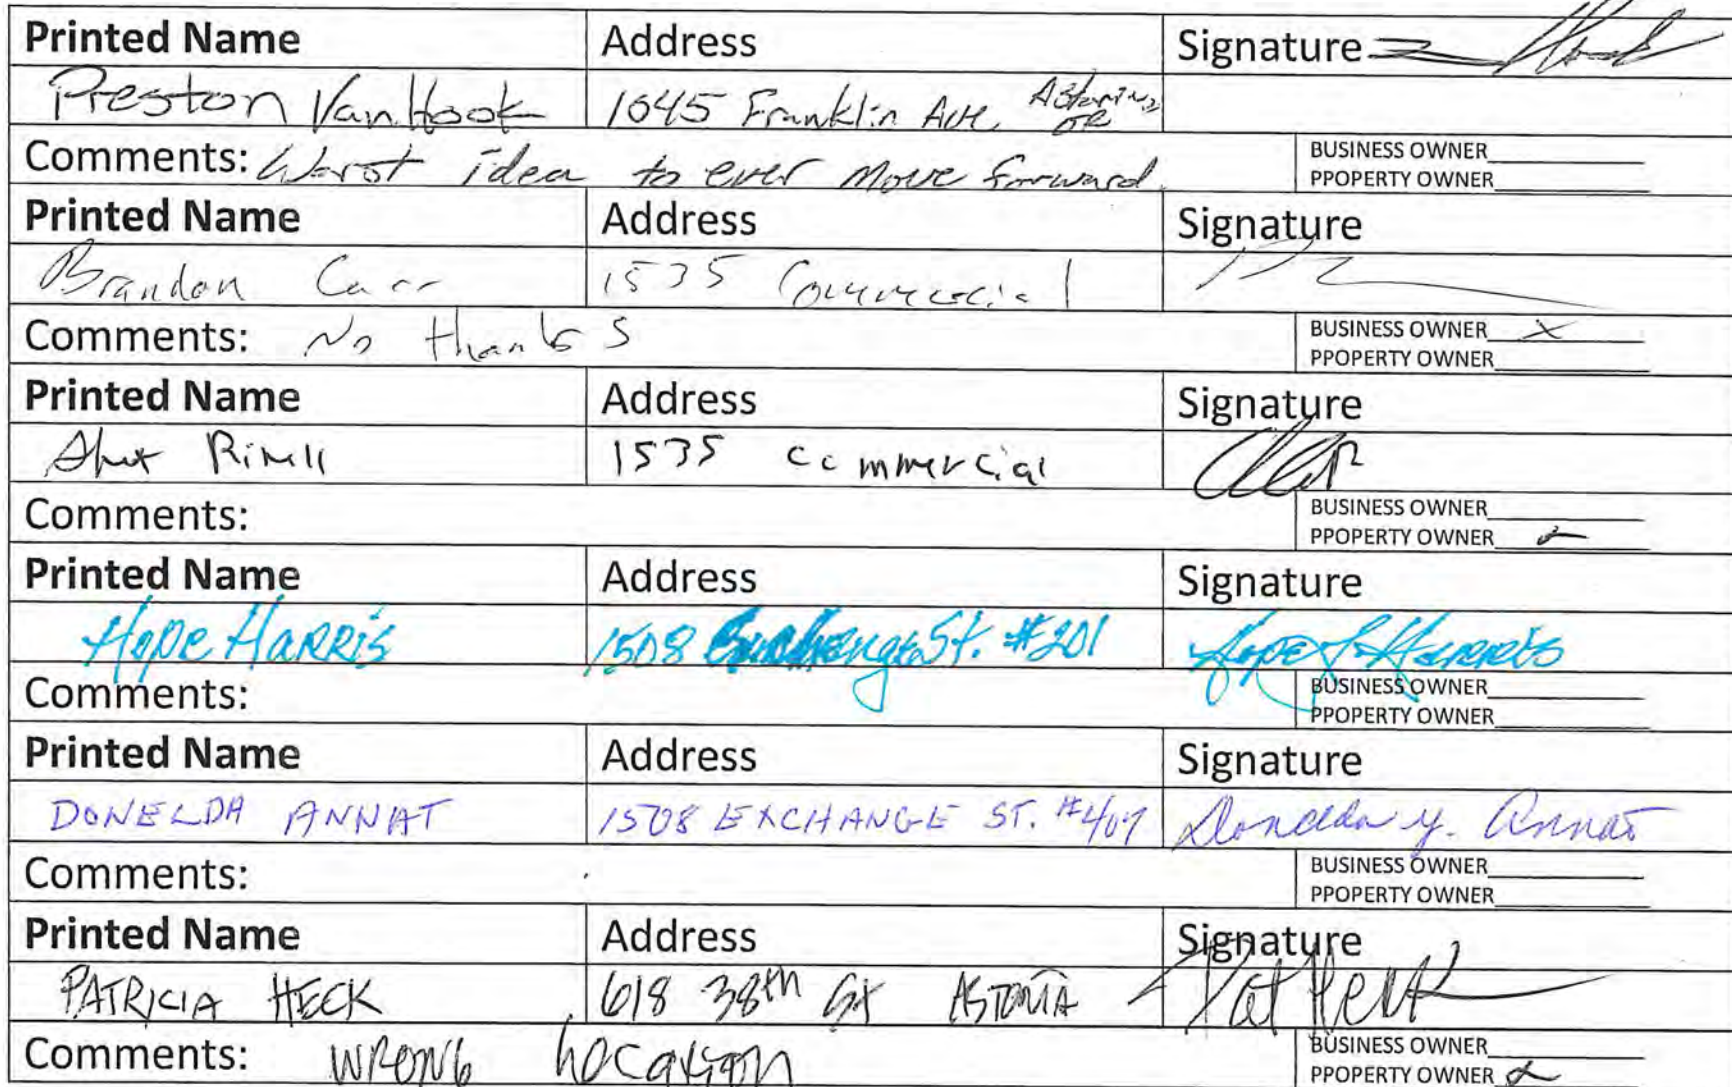 Printed Name Address Signature
Preston VanHook 1045 Franklin Ave. Astoria, OR
Comments: Worst idea to ever move forward. BUSINESS OWNER
PPOPERTY OWNER
Printed Name Address Signature
Brandon Carr 1535 Commercial
Comments: No thanks BUSINESS OWNER X
PPOPERTY OWNER
Printed Name Address Signature
1535 commercial
Comments: BUSINESS OWNER
PPOPERTY OWNER
Printed Name Address Signature
Hope HARRIS 1508 Exchange St. #201 Hope L Harris
Comments: BUSINESS OWNER
PPOPERTY OWNER
Printed Name Address Signature
DONELDA ANNAT 1508 EXCHANGE ST. #407 Donelda y. Annat
Comments: BUSINESS OWNER
PPOPERTY OWNER
Printed Name Address Signature
PATRICIA HECK 618 38th St ASTORIA Pat Heck
Comments: WRONG Location BUSINESS OWNER
PPOPERTY OWNER X